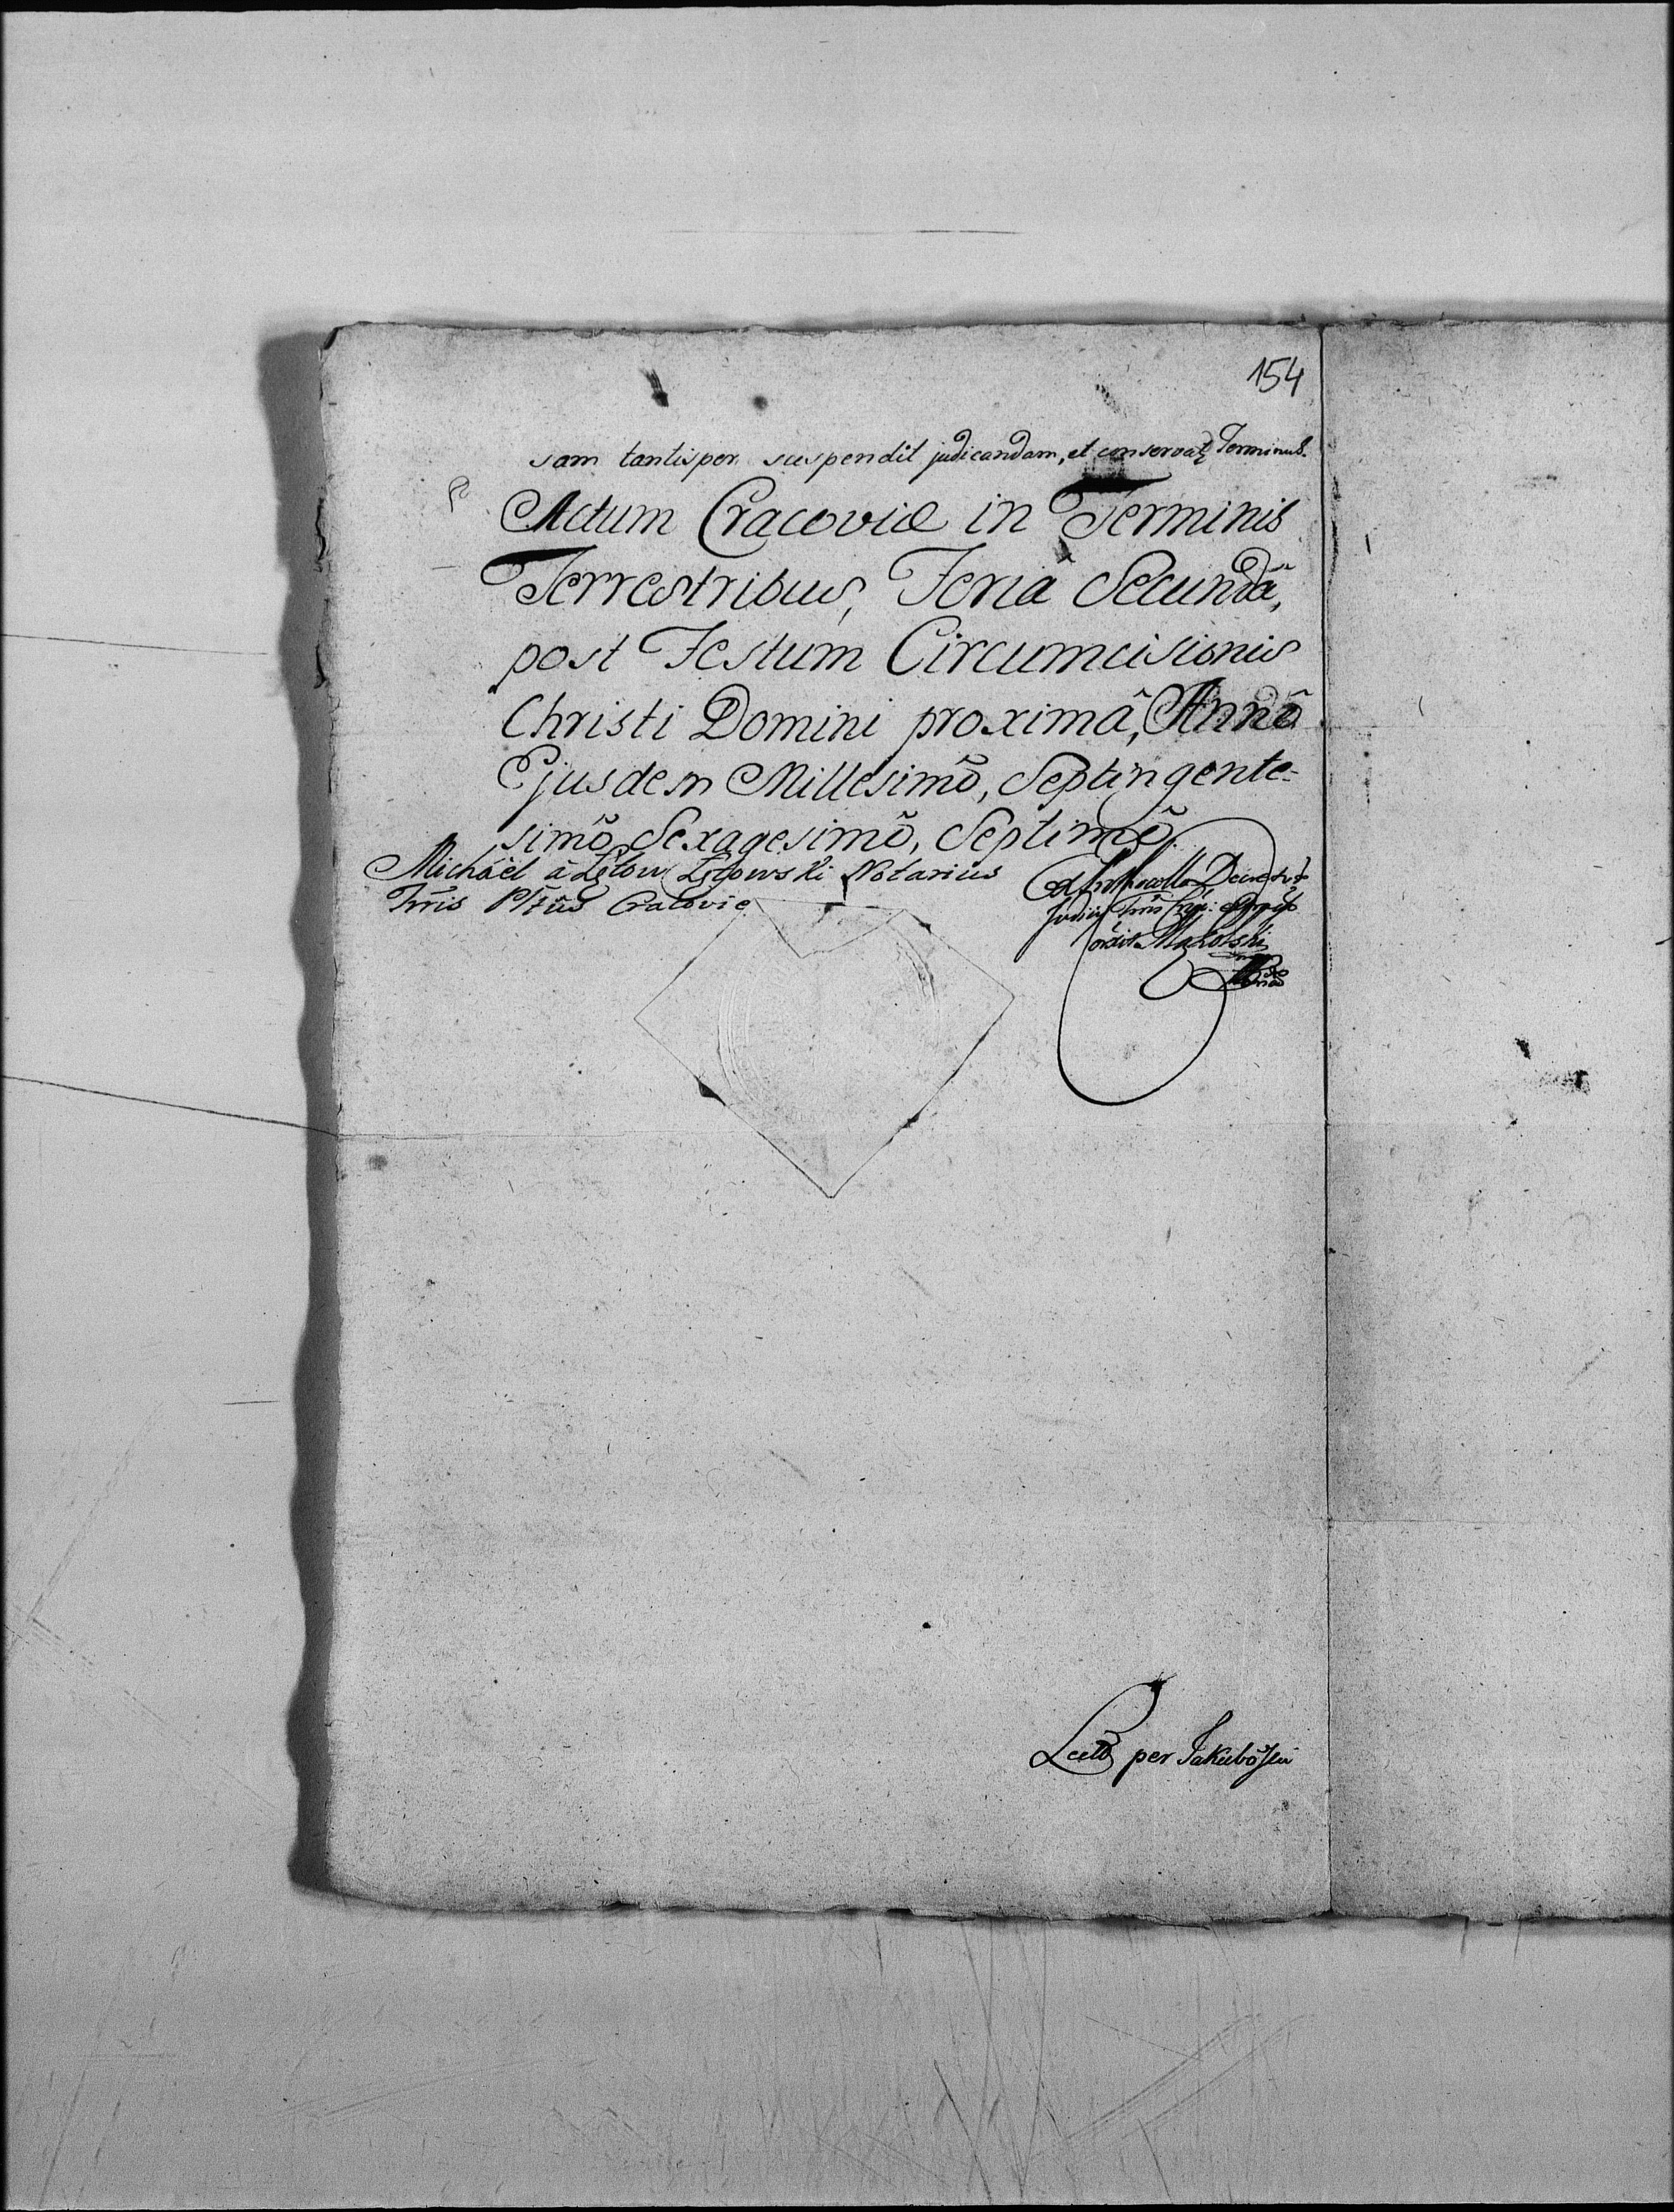 154
sam tantisper suspendit judicandam, et conservat Terminus.
Actum Cracoviæ in Terminis
Terrestribus, Feriâ Secundâ,
post Festum Circumcisionis
Christi Domini proximâ, Annô
Ejusdem Millesimô, Septingente-
simô Sexagesimô, Septimô.
Michâel à Łętow Łętowski Notarius
Trris Cracovie
Decretor
Judicii
Makolski
Lect per Jakubowski